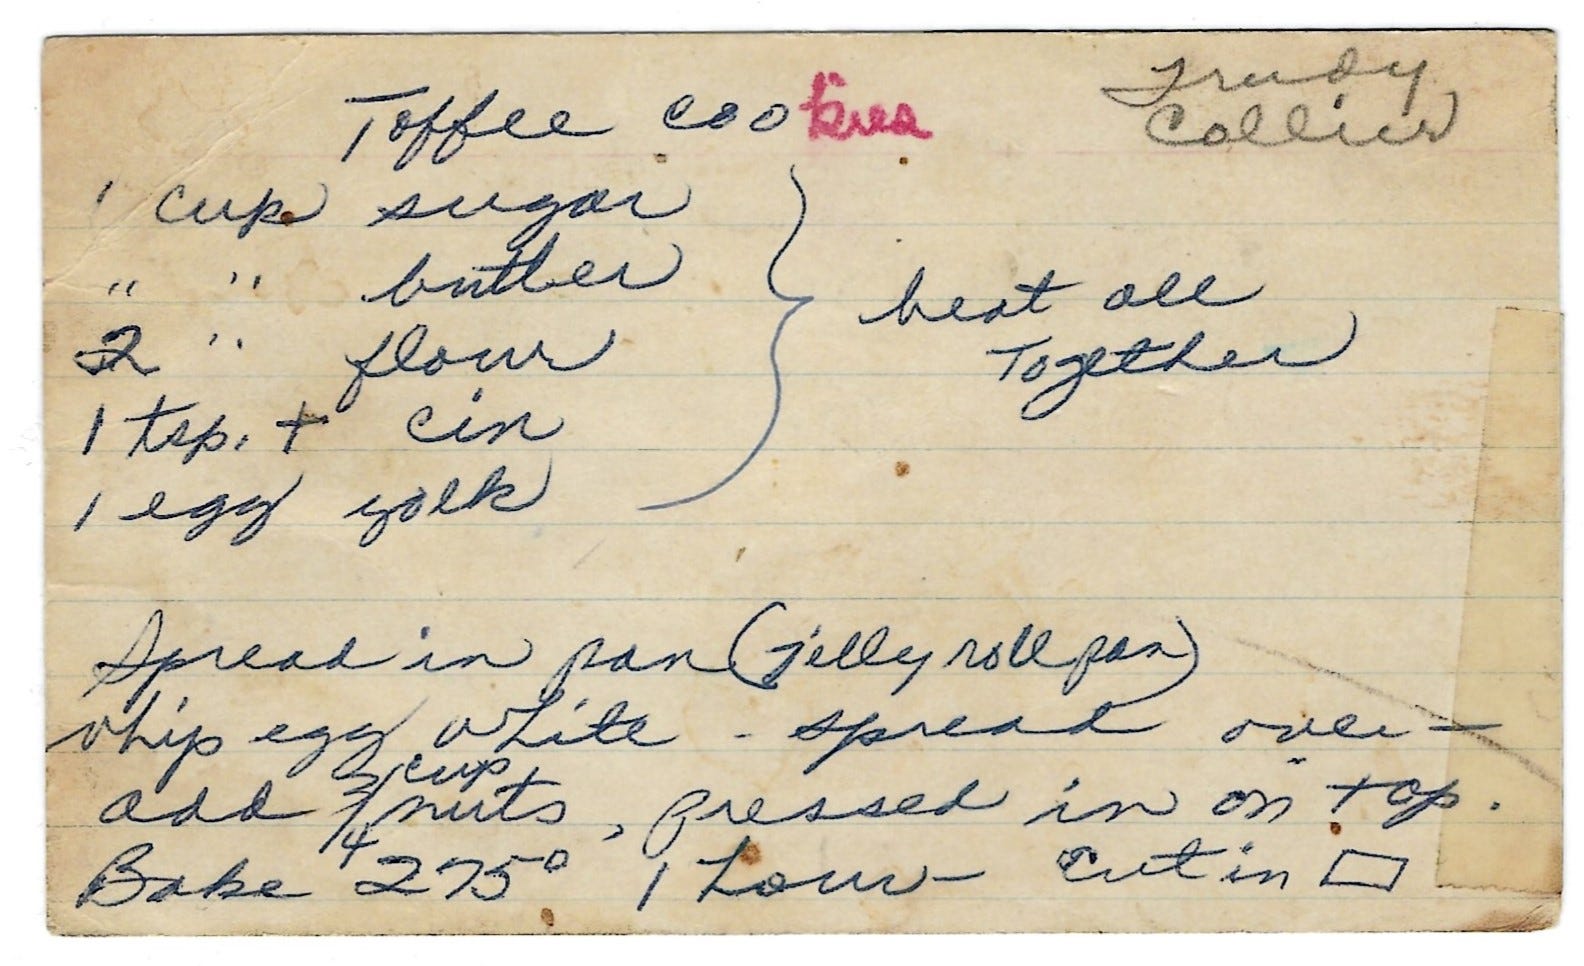 Toffee cookies
Trudy
Collier
1 cup sugar
" " butter
2 " flour
1 tsp. + cin
1 egg yolk
beat all
Together
Spread in pan (jelly roll pan)
whip egg white - spread over -
add 3/4 cup nuts, pressed in on top.
Bake 275° 1 hour - Cut in ▭